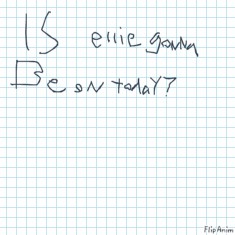 IS ellie gonna
Be on today?
FlipAnim